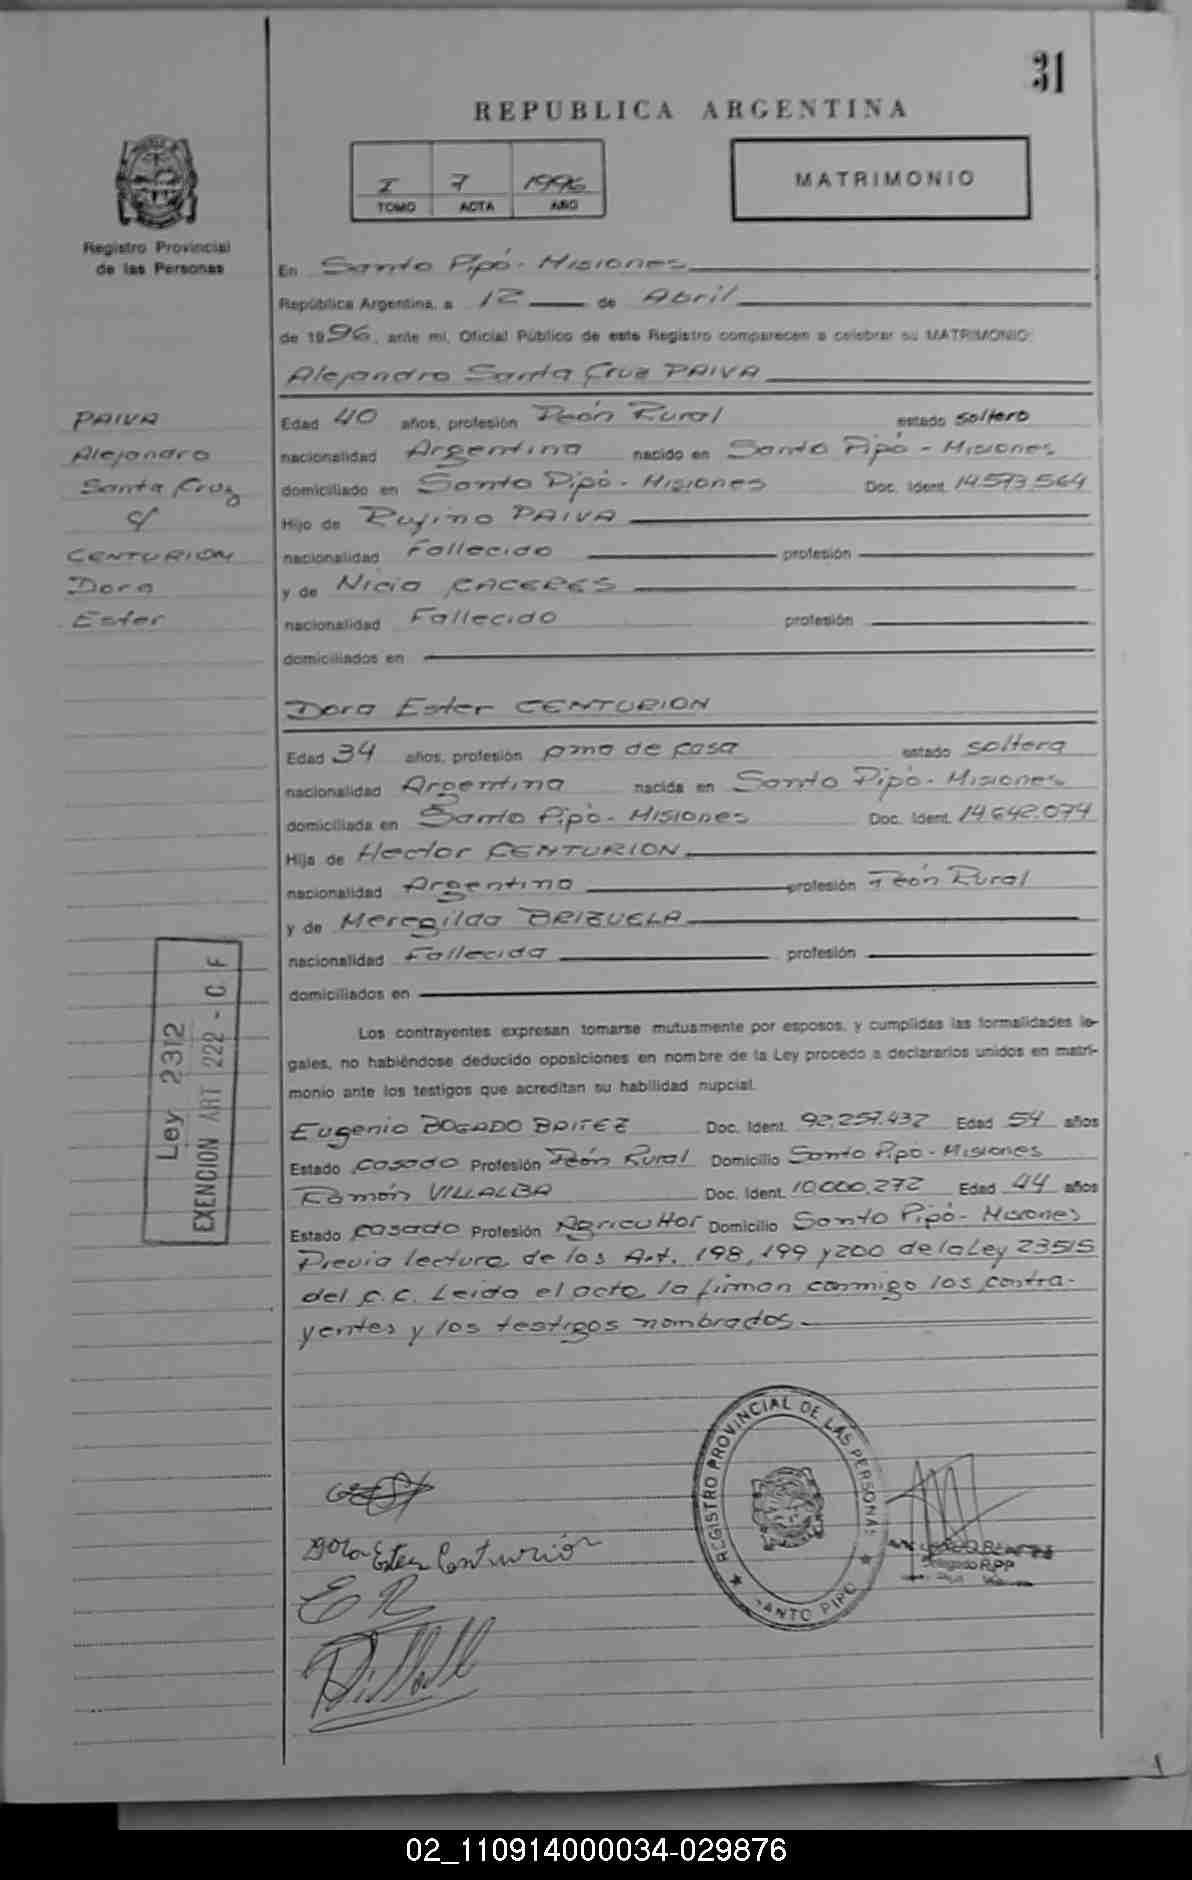 31
REPUBLICA ARGENTINA
I 7 1996
TOMO ACTA AÑO
MATRIMONIO
Registro Provincial
de las Personas
En Santo Pipó - Misiones
República Argentina, a 12 de Abril
de 1996, ante mi, Oficial Público de este Registro comparecen a celebrar su MATRIMONIO:
Alejandro Santa Cruz PAIVA
PAIVA
Alejandro
Santa Cruz
c/
CENTURION
Dora
Ester
Edad 40 años, profesión Peón Rural estado soltero
nacionalidad Argentina nacido en Santo Pipó - Misiones
domiciliado en Santo Pipó - Misiones Doc. Ident. 14.573.564
Hijo de Rufino PAIVA
nacionalidad Fallecido profesión
y de Nicia CACERES
nacionalidad Fallecido profesión
domiciliados en
Dora Ester CENTURION
Edad 34 años, profesión ama de casa estado soltera
nacionalidad Argentina nacida en Santo Pipó - Misiones
domiciliada en Santo Pipó - Misiones Doc. Ident. 14.642.074
Hija de Hector CENTURION
nacionalidad Argentino profesión Peón Rural
y de Meregilda BRIZUELA
nacionalidad Fallecida profesión
domiciliados en
Ley 2312
EXENCION ART 222 - C F
Los contrayentes expresan tomarse mutuamente por esposos, y cumplidas las formalidades le-
gales, no habiéndose deducido oposiciones en nombre de la Ley procedo a declararlos unidos en matri-
monio ante los testigos que acreditan su habilidad nupcial.
Eugenio BOGADO BRITEZ Doc. Ident. 92.257.432 Edad 54 años
Estado casado Profesión Peón Rural Domicilio Santo Pipó - Misiones
Ramón VILLALBA Doc. Ident. 10.000.272 Edad 44 años
Estado casado Profesión Agricultor Domicilio Santo Pipó - Misiones
Previa lectura de los Art. 198, 199 y 200 de la Ley 23515
del C.C. Leida el acta, la firman conmigo los contra-
yentes y los testigos nombrados.
REGISTRO PROVINCIAL DE LAS PERSONAS
SANTO PIPO
Dora Ester Centurión
E R
Delegado RPP
02_110914000034-029876